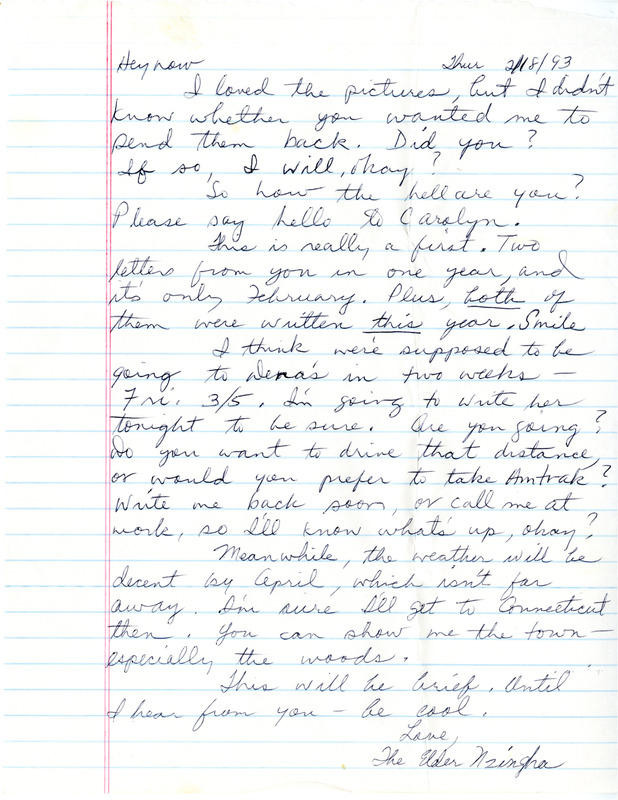 Hey now Thur 2/18/93
I loved the pictures, but I didn't
know whether you wanted me to
send them back. Did you?
If so, I will, okay?
So how the hell are you?
Please say hello to Carolyn.
This is really a first. Two
letters from you in one year, and
it's only February. Plus, both of
them were written this year. Smile
I think we're supposed to be
going to Dena's in two weeks —
Fri. 3/5. I'm going to write her
tonight to be sure. Are you going?
Do you want to drive that distance,
or would you prefer to take Amtrak?
Write me back soon, or call me at
work, so I'll know what's up, okay?
Meanwhile, the weather will be
decent by April, which isn't far
away. I'm sure I'll get to Connecticut
then. You can show me the town —
especially the woods.
This will be brief. Until
I hear from you — be cool.
Love,
The Elder Nzingha